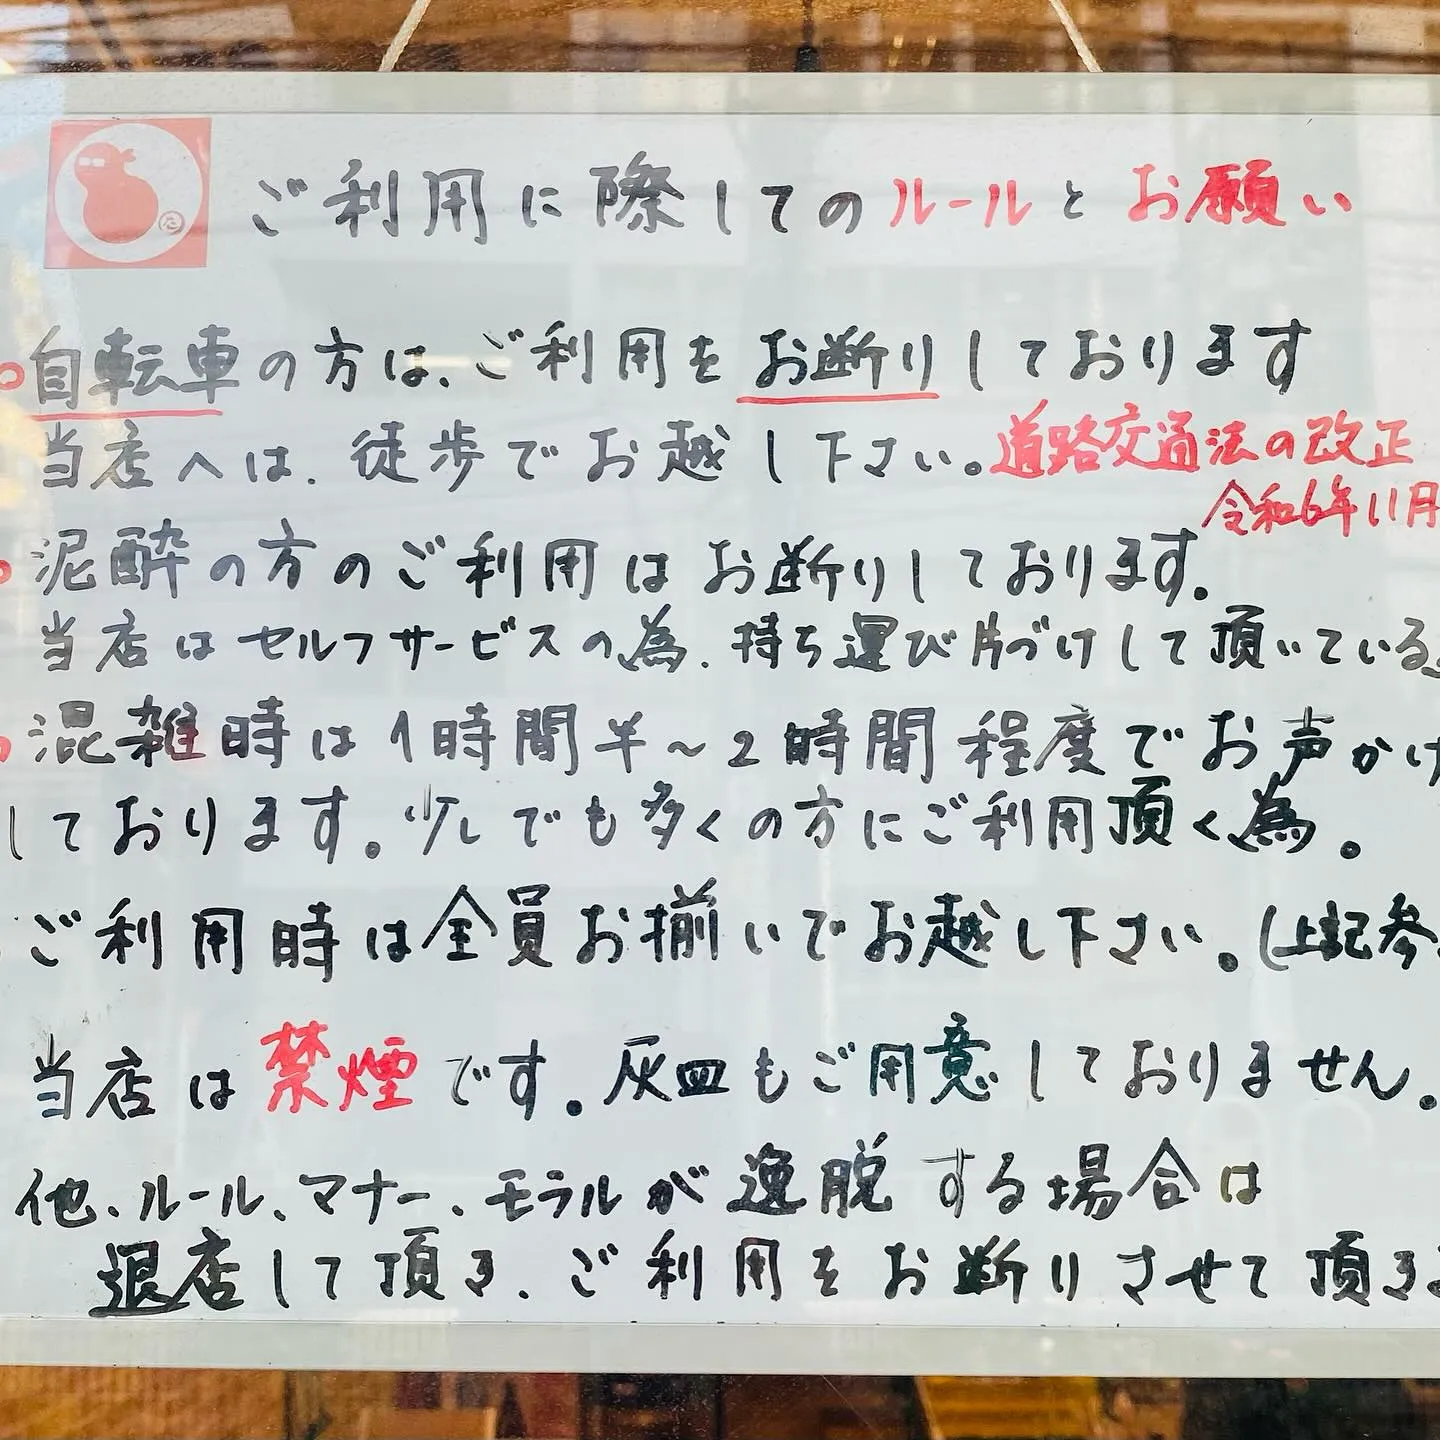 ご利用に際してのルールとお願い
自転車の方は、ご利用をお断りしております
当店へは、徒歩でお越し下さい。道路交通法の改正
令和6年11月
泥酔の方のご利用はお断りしております。
当店はセルフサービスの為、持ち運び片づけして頂いている
混雑時は1時間半~2時間程度でお声かけ
しております。少しでも多くの方にご利用頂く為。
ご利用時は全員お揃いでお越し下さい。(上記参
当店は禁煙です。灰皿もご用意しておりません。
他、ルール、マナー、モラルが逸脱する場合は
退店して頂き、ご利用をお断りさせて頂きま